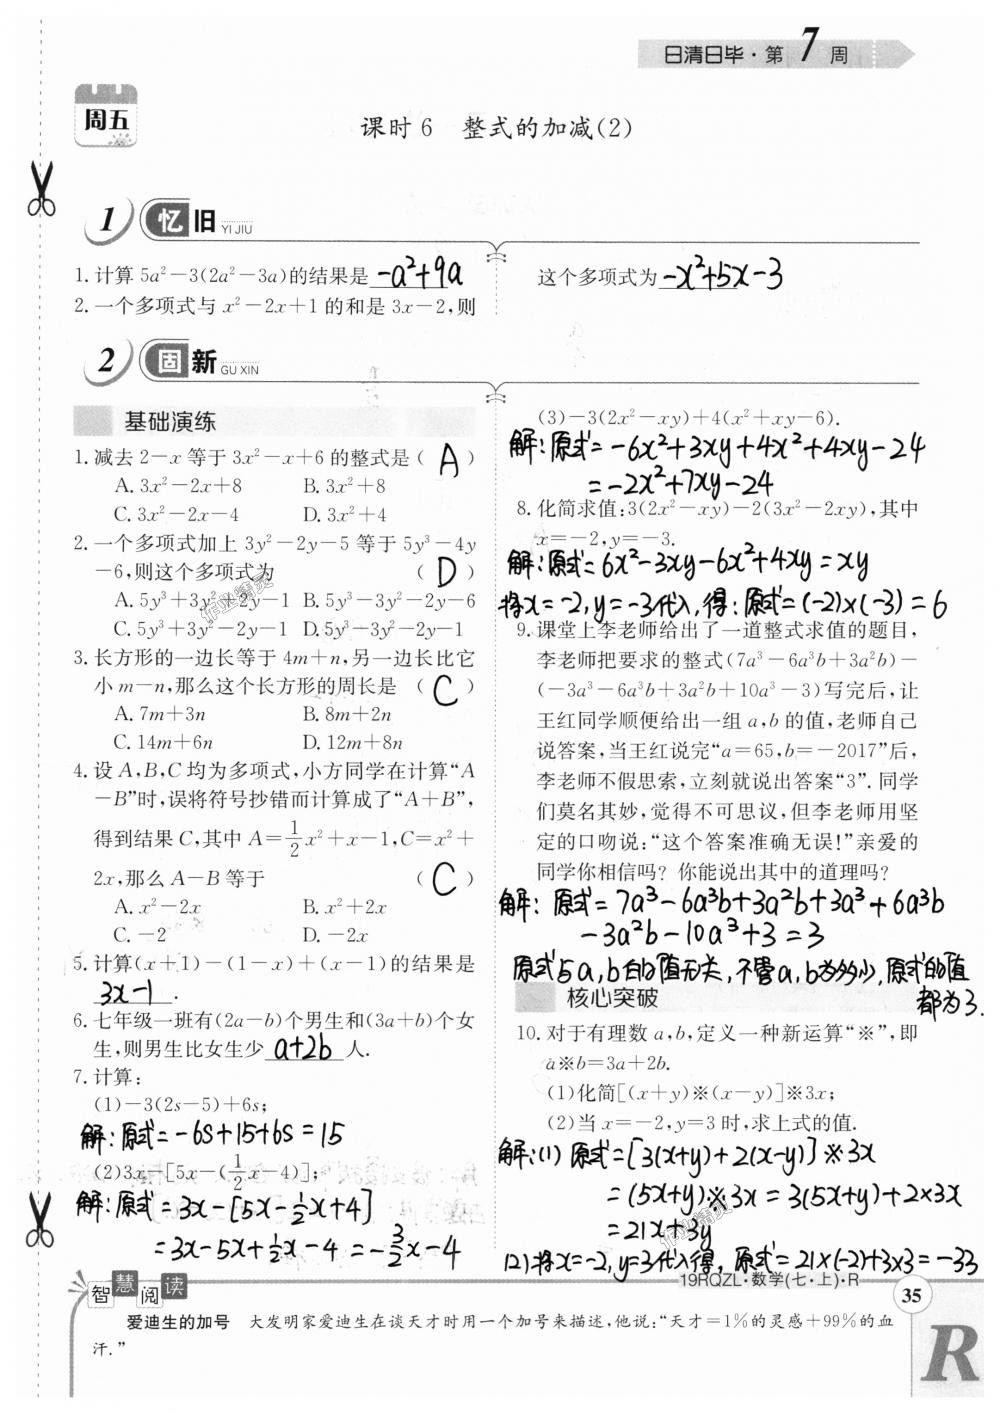 日清日毕·第7周
周五
课时6 整式的加减(2)
1 忆旧 YI JIU
1. 计算 5a²-3(2a²-3a)的结果是 -a²+9a
2. 一个多项式与 x²-2x+1 的和是 3x-2,则
这个多项式为 -x²+5x-3
2 固新 GU XIN
基础演练
1. 减去 2-x 等于 3x²-x+6 的整式是 ( A )
A. 3x²-2x+8 B. 3x²+8
C. 3x²-2x-4 D. 3x²+4
2. 一个多项式加上 3y²-2y-5 等于 5y³-4y
-6,则这个多项式为 ( D )
A. 5y³+3y²-2y-1 B. 5y³-3y²-2y-6
C. 5y³+3y²-2y-1 D. 5y³-3y²-2y-1
3. 长方形的一边长等于 4m+n,另一边长比它
小 m-n,那么这个长方形的周长是 ( C )
A. 7m+3n B. 8m+2n
C. 14m+6n D. 12m+8n
4. 设 A,B,C 均为多项式,小方同学在计算“A
-B”时,误将符号抄错而计算成了“A+B”,
得到结果 C,其中 A=1/2x²+x-1,C=x²+
2x,那么 A-B 等于 ( C )
A. x²-2x B. x²+2x
C. -2 D. -2x
5. 计算(x+1)-(1-x)+(x-1)的结果是
3x-1.
6. 七年级一班有(2a-b)个男生和(3a+b)个女
生,则男生比女生少 a+2b 人.
7. 计算:
(1)-3(2s-5)+6s;
解:原式=-6s+15+6s=15
(2)3x-[5x-(1/2x-4)];
解:原式=3x-[5x-1/2x+4]
=3x-5x+1/2x-4=-3/2x-4
(3)-3(2x²-xy)+4(x²+xy-6).
解:原式=-6x²+3xy+4x²+4xy-24
=-2x²+7xy-24
8. 化简求值:3(2x²-xy)-2(3x²-2xy),其中
x=-2,y=-3.
解:原式=6x²-3xy-6x²+4xy=xy
将x=-2,y=-3代入,得:原式=(-2)×(-3)=6
9. 课堂上李老师给出了一道整式求值的题目,
李老师把要求的整式(7a³-6a³b+3a²b)-
(-3a³-6a³b+3a²b+10a³-3)写完后,让
王红同学顺便给出一组 a,b 的值,老师自己
说答案,当王红说完“a=65,b=-2017”后,
李老师不假思索,立刻就说出答案“3”. 同学
们莫名其妙,觉得不可思议,但李老师用坚
定的口吻说:“这个答案准确无误!”亲爱的
同学你相信吗? 你能说出其中的道理吗?
解:原式=7a³-6a³b+3a²b+3a³+6a³b
-3a²b-10a³+3=3
原式与a,b的值无关,不管a,b为多少,原式的值
都为3.
核心突破
10. 对于有理数 a,b,定义一种新运算“※”,即
a※b=3a+2b.
(1)化简[(x+y)※(x-y)]※3x;
(2)当 x=-2,y=3 时,求上式的值.
解:(1)原式=[3(x+y)+2(x-y)]※3x
=(5x+y)※3x=3(5x+y)+2×3x
=21x+3y
(2)将x=-2,y=3代入得,原式=21×(-2)+3×3=-33
19RQZL·数学(七·上)·R
35
智慧阅读
爱迪生的加号 大发明家爱迪生在谈天才时用一个加号来描述,他说:“天才=1%的灵感+99%的血
汗.”
R